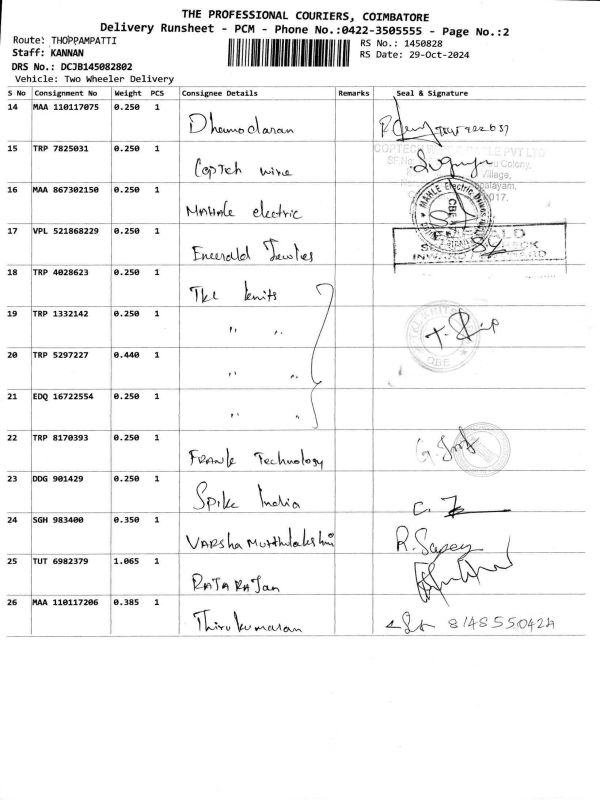 THE PROFESSIONAL COURIERS, COIMBATORE
Delivery Runsheet - PCM - Phone No.:0422-3505555 - Page No.:2
Route: THOPPAMPATTI RS No.: 1450828
Staff: KANNAN RS Date: 29-Oct-2024
DRS No.: DCJB145082802
Vehicle: Two Wheeler Delivery
S No Consignment No Weight PCS Consignee Details Remarks Seal & Signature
14 MAA 110117075 0.250 1
Dhamodaran
15 TRP 7825031 0.250 1
Coptech wire
16 MAA 867302150 0.250 1
Mahale electric
17 VPL 521868229 0.250 1
Emerald
18 TRP 4028623 0.250 1
TKL knits
19 TRP 1332142 0.250 1
" "
20 TRP 5297227 0.440 1
" "
21 EDQ 16722554 0.250 1
" "
22 TRP 8170393 0.250 1
FRANK Technology
23 DDG 901429 0.250 1
Spike India
24 SGH 983400 0.350 1
VARSHA Muthulakshmi
25 TUT 6982379 1.065 1
RAJARAJan
26 MAA 110117206 0.385 1
Thirukumaran 8148550424